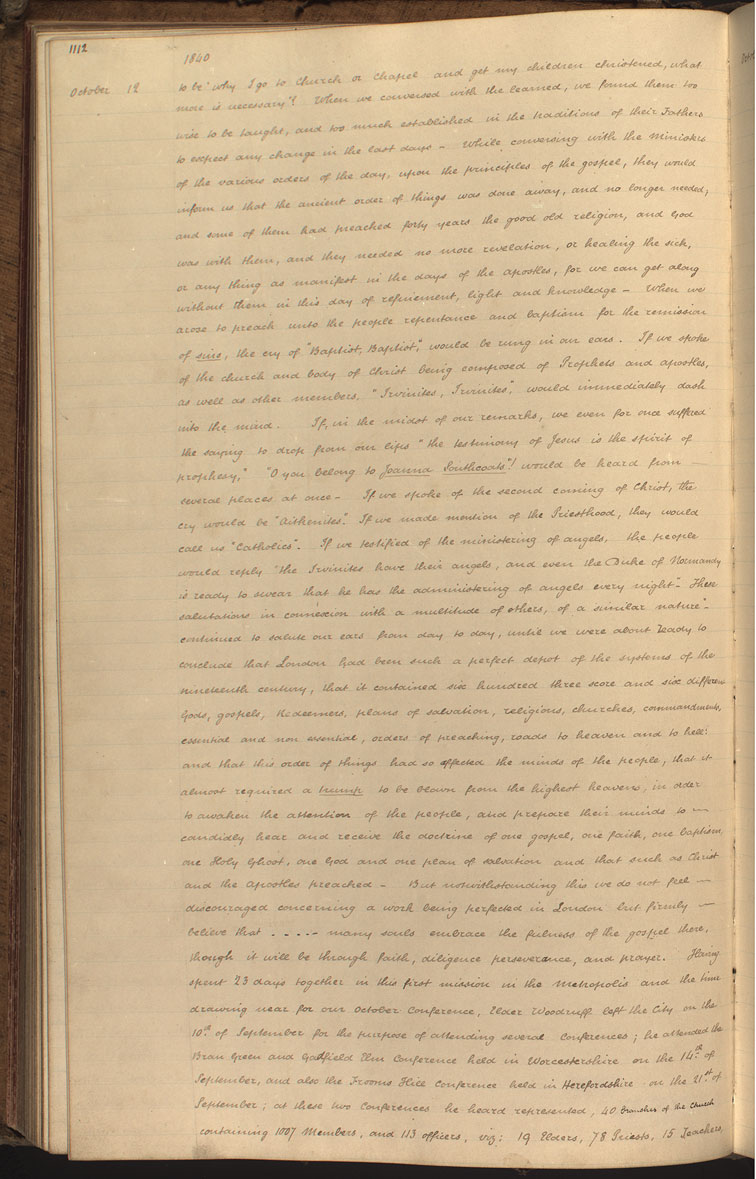 1112
1840
October 12 to be "why I go to Church or Chapel and get my children christened, what
more is necessary"! When we conversed with the learned, we found them too
wise to be taught, and too much established in the traditions of their Fathers
to expect any change in the last days – While conversing with the ministers
of the various orders of the day, upon the principles of the gospel, they would
inform us that the ancient order of things was done away, and no longer needed;
and some of them had preached forty years the good old religion, and God
was with them, and they needed no more revelation, or healing the sick,
or any thing as manifest in the days of the apostles, for we can get along
without them in this day of refinement, light and knowledge – When we
arose to preach unto the people repentance and baptism for the remission
of sins, the cry of "Baptist, Baptist," would be rung in our ears. If we spoke
of the church and body of Christ being composed of Prophets and apostles,
as well as other members, "Irvinites, Irvinites", would immediately dash
into the mind. If, in the midst of our remarks, we even for once suffered
the saying to drop from our lips "the testimony of Jesus is the spirit of
prophesy," "O you belong to Joanna Southcoats"! would be heard from —
several places at once – If we spoke of the second coming of Christ, the
cry would be "Aitkenites". If we made mention of the Priesthood, they would
call us "Catholics". If we testified of the ministering of angels, the people
would reply "the Irvinites have their angels, and even the Duke of Normandy
is ready to swear that he has the administering of angels every night". These
salutations in connexion with a multitude of others, of a similar nature –
continued to salute our ears from day to day, until we were about ready to
conclude that London had been such a perfect depot of the systems of the
nineteenth century, that it contained six hundred three score and six different
Gods, gospels, Redeemers, plans of salvation, religions, churches, commandments,
essential and non essential, orders of preaching, roads to heaven and to hell;
and that this order of things had so effected the minds of the people, that it
almost required a trump to be blown from the highest heavens, in order
to awaken the attention of the people, and prepare their minds to —
candidly hear and receive the doctrine of one gospel, one faith, one baptism,
one Holy Ghost, one God and one plan of salvation and that such as Christ
and the apostles preached – But notwithstanding this we do not feel —
discouraged concerning a work being perfected in London but firmly —
believe that ..... many souls embrace the fulness of the gospel there,
though it will be through faith, diligence perseverance, and prayer. Having
spent 23 days together in this first mission in the metropolis and the time
drawing near for our October Conference, Elder Woodruff left the City on the
10th of September for the purpose of attending several Conferences; he attended the
Bran Green and Gadfield Elm Conference held in Worcestershire on the 14th of
September, and also the Frooms Hill Conference held in Herefordshire on the 21st of
September; at these two Conferences he heard represented, 40 branches of the Church
containing 1007 Members, and 113 officers, viz: 19 Elders, 78 Priests, 15 Teachers,